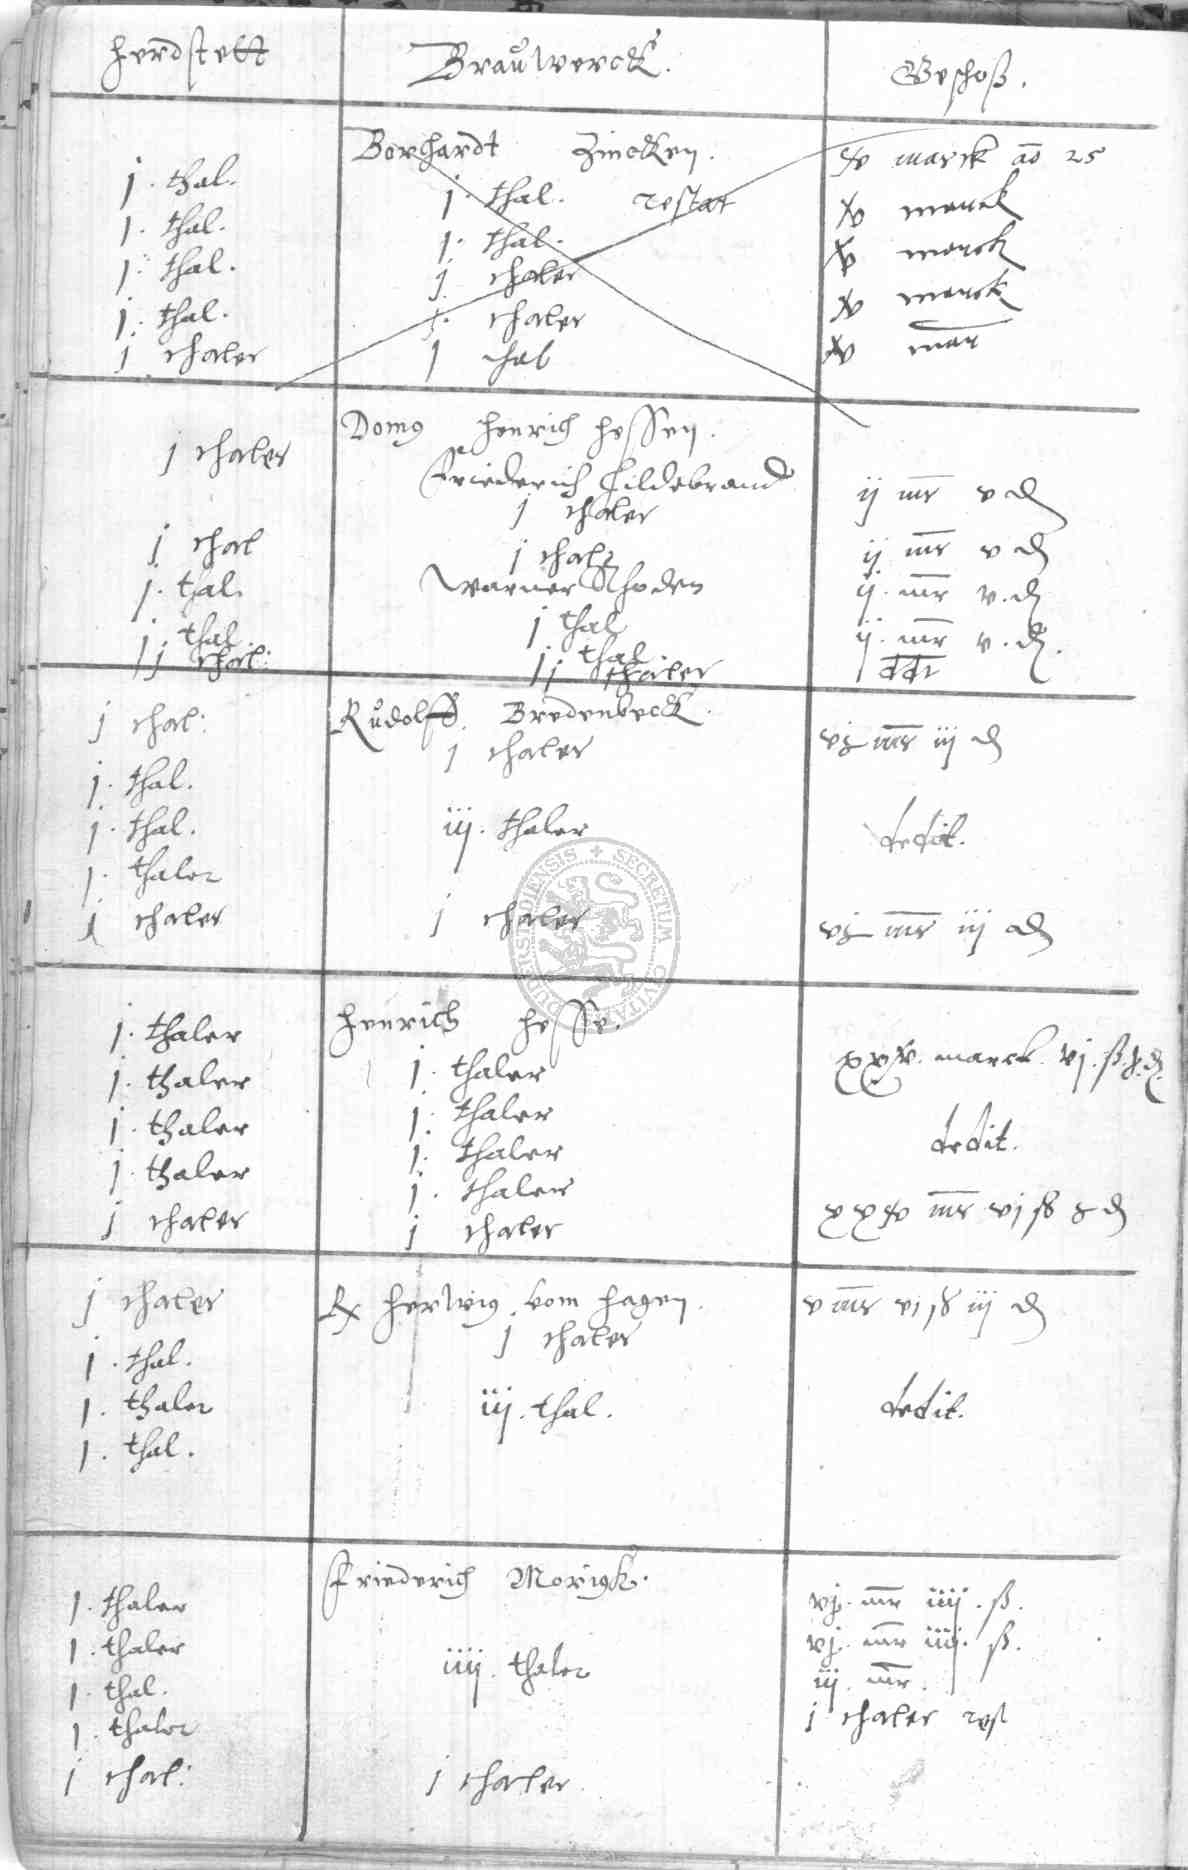 Herdstett Brauwerck. Geschoß.
Borchardt Zincken.
j. thal. j. thal. restat xv marck ao 25
j. thal. j. thal. xv marck
j. thal. j thaler xv marck
j. thal. j. thaler xv marck
j thaler j thal xv mar
Domg Henrich Hessen.
j thaler Friederich Hildebrand
j thaler ij mr v d
j thal j thal ij mr v d
j. thal. Warner Rhoden ij. mr v. d
j. thal. j thal ij. mr v. d.
j thal: j thal.
j thaler ddt
Rudolff Bredenbeck.
j thal: j thaler mr iij d
j. thal.
j. thal. iij. thaler dedit.
j. thaler
j thaler j thaler mr iij d
Henrich Hesse.
j. thaler j. thaler xxv. marck. vj. ß. d.
j. thaler j. thaler
j. thaler j. thaler dedit.
j. thaler j. thaler
j thaler j thaler xxxv mr vj ß d
Herwig vom Hagen.
j thaler j thaler v mr vj ß iij d
j. thal.
j. thaler iij. thal. dedit.
j. thal.
Friederich
j. thaler vj. mr iiij. ß.
j. thaler iiij. thaler vj. mr iiij. ß.
j. thal. iij. mr.
j. thaler j thaler rest
j thal: j thaler
SECRETUM CIVITATIS DUDERSTADIENSIS